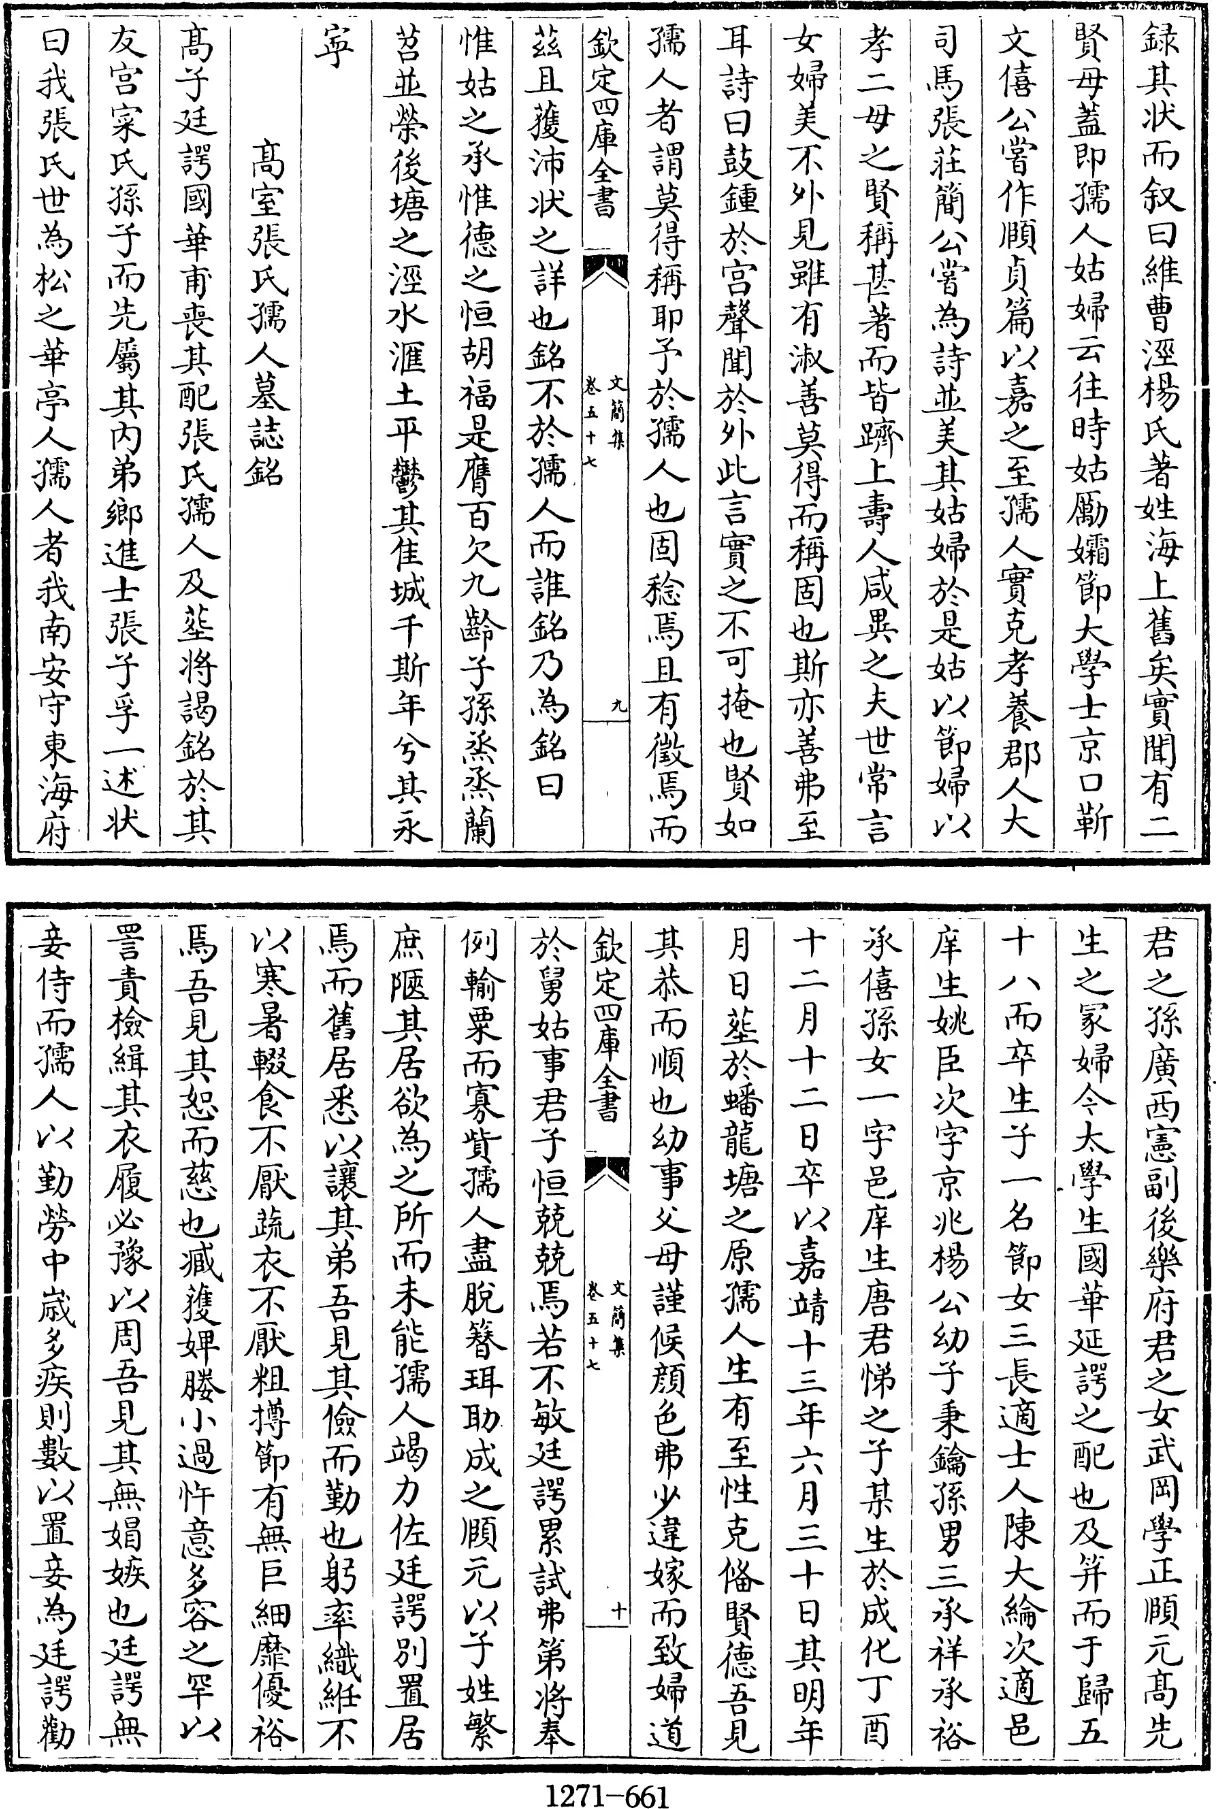 録其状而叙曰維曹涇楊氏著姓海上舊矣實聞有二
賢母蓋即孺人姑婦云往時姑勵孀節大學士京口靳
文僖公嘗作順貞篇以嘉之至孺人實克孝養郡人大
司馬張莊簡公嘗為詩並美其姑婦於是姑以節婦以
孝二母之賢稱甚著而皆躋上壽人咸異之夫世常言
女婦美不外見雖有淑善莫得而稱固也斯亦善弗至
耳詩曰鼓鍾於宫聲聞於外此言實之不可掩也賢如
孺人者謂莫得稱耶予於孺人也固稔焉且有徵焉而
欽定四庫全書
文簡集
卷五十七
九
茲且獲沛状之詳也銘不於孺人而誰銘乃為銘曰
惟姑之承惟德之恒胡福是膺百欠九齡子孫烝烝蘭
苕並榮後塘之涇水滙土平鬱其隹城千斯年兮其永
寜
高室張氏孺人墓誌銘
高子廷諤國華甫喪其配張氏孺人及塟将謁銘於其
友宫寀氏孫子而先屬其内弟鄉進士張子孚一述状
曰我張氏世為松之華亭人孺人者我南安守東海府
君之孫廣西憲副後樂府君之女武岡學正順元高先
生之冢婦今太學生國華延諤之配也及笄而于歸五
十八而卒生子一名節女三長適士人陳大綸次適邑
庠生姚臣次字京兆楊公幼子秉鑰孫男三承祥承裕
承僖孫女一字邑庠生唐君悌之子某生於成化丁酉
十二月十二日卒以嘉靖十三年六月三十日其明年
月日塟於蟠龍塘之原孺人生有至性克俻賢德吾見
其恭而順也幼事父母謹候顔色弗少違嫁而致婦道
欽定四庫全書
文簡集
卷五十七
十
於舅姑事君子恒兢兢焉若不敏廷諤累試弗第將奉
例輸粟而寡貲孺人盡脱簪珥助成之順元以子姓繁
庶陋其居欲為之所而未能孺人竭力佐廷諤别置居
焉而舊居悉以讓其弟吾見其儉而勤也躬率織絍不
以寒暑輟食不厭蔬衣不厭粗撙節有無巨細靡優裕
焉吾見其恕而慈也臧獲婢媵小過忤意多容之罕以
詈責檢緝其衣履必豫以周吾見其無娼嫉也廷諤無
妾侍而孺人以勤勞中嵗多疾則數以置妾為廷諤勸
1271-661